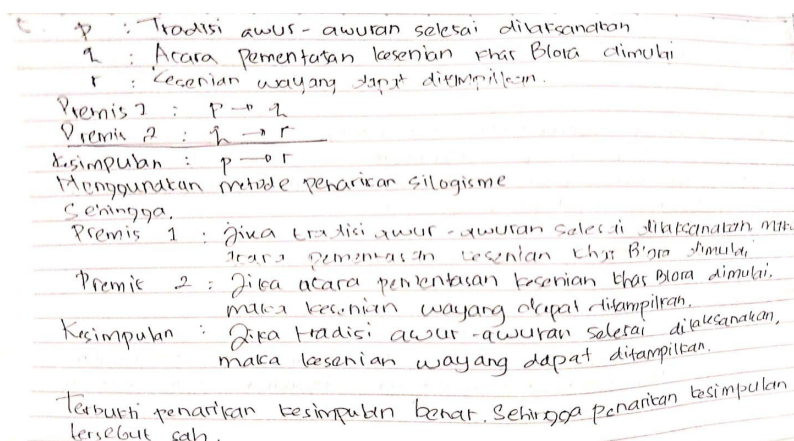 C. p : Tradisi awur-awuran selesai dilaksanakan
q : Acara pementasan kesenian khas Blora dimulai
r : Kesenian wayang dapat ditampilkan.
Premis 1 : p → q
Premis 2 : q → r
Kesimpulan : p → r
Menggunakan metode penarikan silogisme
Sehingga,
Premis 1 : Jika tradisi awur-awuran selesai dilaksanakan, maka
acara pementasan kesenian khas Blora dimulai,
Premis 2 : Jika acara pementasan kesenian khas Blora dimulai,
maka kesenian wayang dapat ditampilkan.
Kesimpulan : Jika tradisi awur-awuran selesai dilaksanakan,
maka kesenian wayang dapat ditampilkan.
Terbukti penarikan kesimpulan benar. Sehingga penarikan kesimpulan
tersebut sah.